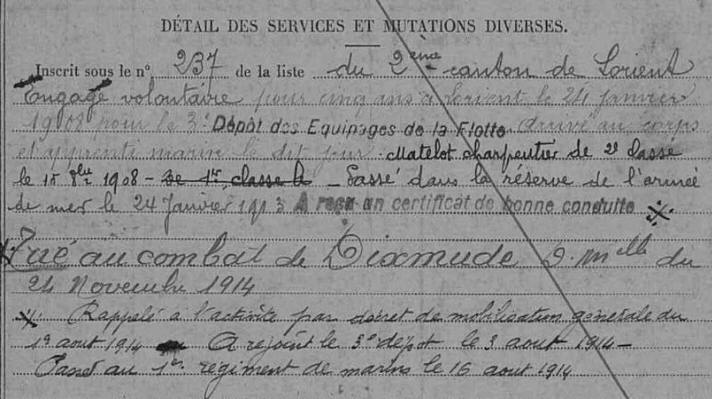 DÉTAIL DES SERVICES ET MUTATIONS DIVERSES.
Inscrit sous le n° 237 de la liste du 2ème canton de Lorient
Engagé volontaire pour cinq ans à Lorient le 24 janvier
1908 pour le 3e Dépôt des Equipages de la Flotte Arrivé au corps
et apprenti marin le dit jour. Matelot charpentier de 2e classe
le 15 8bre 1908 - de 1re classe le - Passé dans la réserve de l'armée
de mer le 24 Janvier 1913 A reçu un certificat de bonne conduite
Tué au combat de Dixmude D. Melle du
24 Novembre 1914
Rappelé à l'activité par décret de mobilisation générale du
1er aout 1914 A rejoint le 3e dépot le 3 aout 1914 -
Passé au 1er régiment de marins le 15 aout 1914